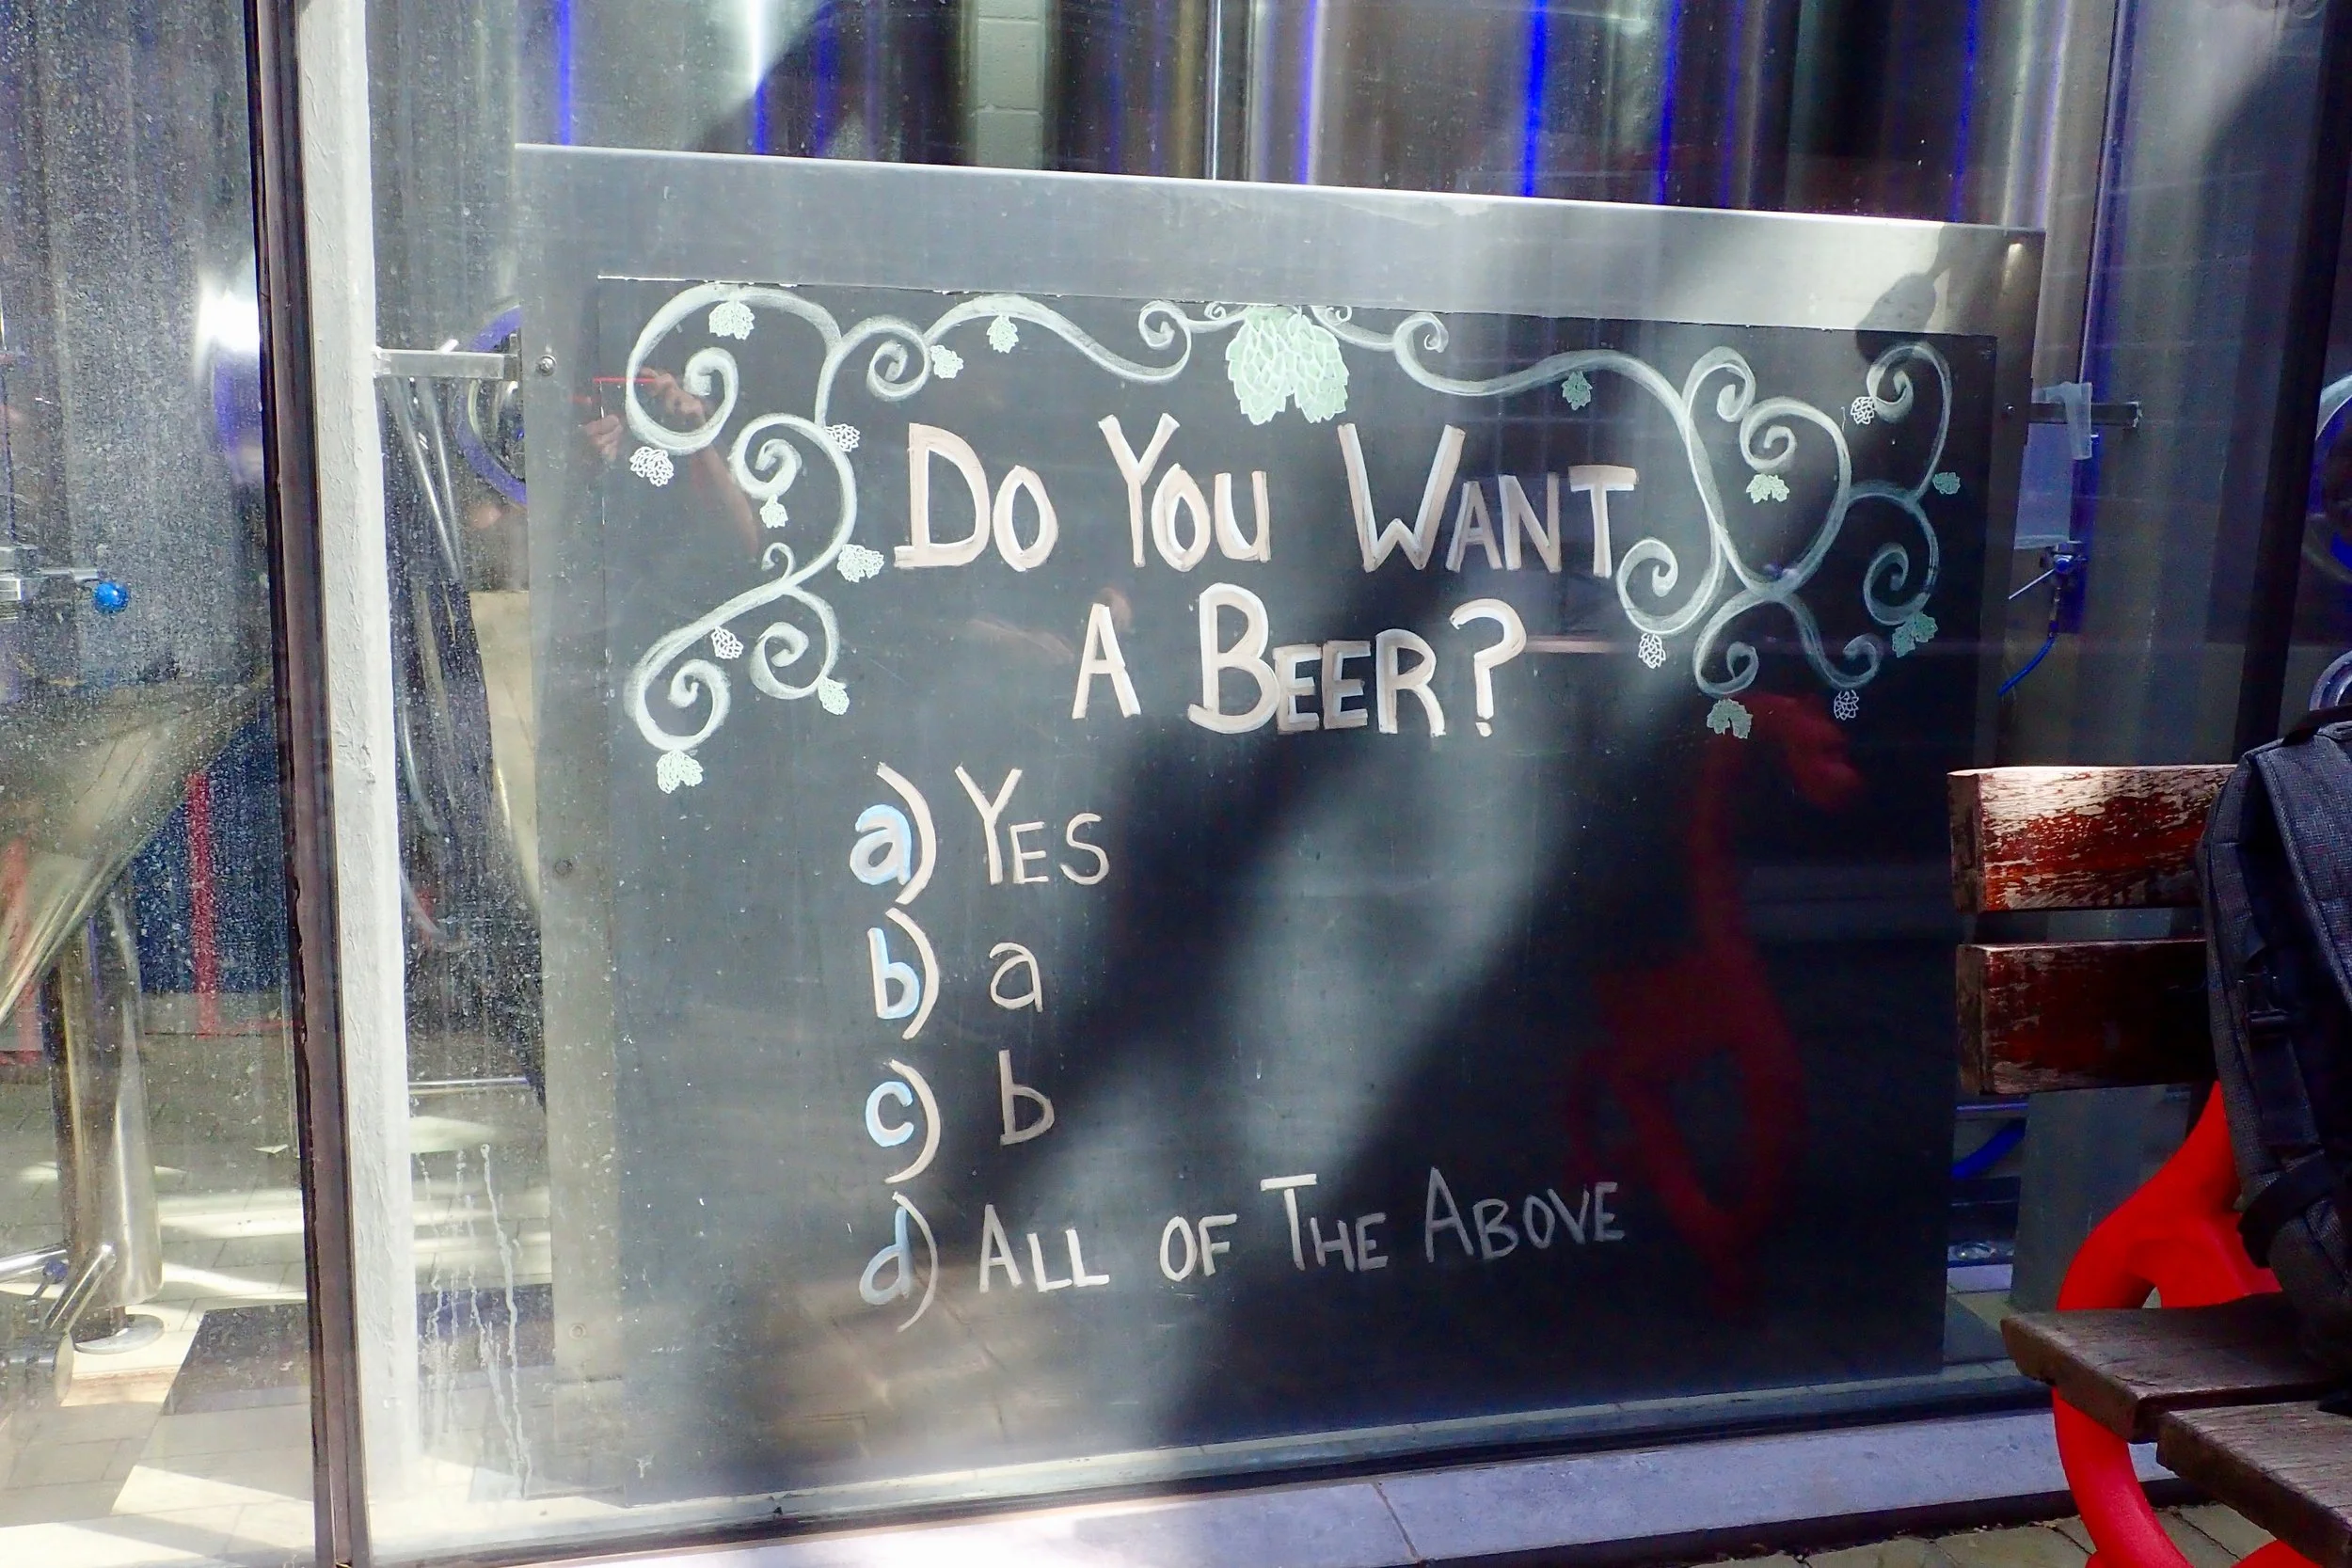 Do You Want
A Beer?
a) Yes
b) a
c) b
d) All of The Above